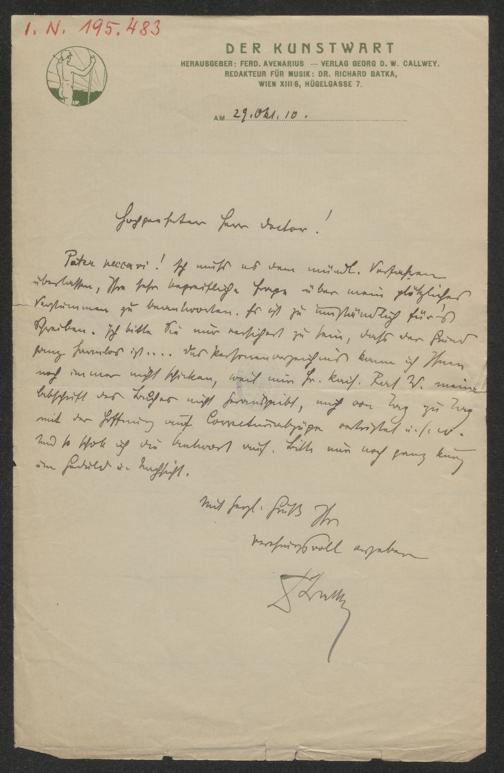 I. N. 195.483
DER KUNSTWART
HERAUSGEBER: FERD. AVENARIUS — VERLAG GEORG D. W. CALLWEY.
REDAKTEUR FÜR MUSIK: DR. RICHARD BATKA,
WIEN XIII/6, HÜGELGASSE 7.
AM 29. Okt. 10.
Hochgeehrter Herr Doctor!
Pater peccavi! Ich muß es dem mündl. Verfahren
überlassen, Ihre sehr begreifliche Frage über mein plötzliches
Verstummen zu beantworten. Es ist zu umständlich für's
Schreiben. Ich bitte Sie nur versichert zu sein, daß der Grund
ganz harmlos ist.... Das Personenverzeichnis kann ich Ihnen
noch immer nicht schicken, weil mir Hr. Kais. Rat W. meine
Abschrift des Buches nicht herausgibt, mich von Tag zu Tag
mit der Hoffnung auf Correcturabzüge vertröstet u.s.w.
Und so schob ich die Antwort auf. Bitte nur noch ganz kurz
um Geduld u. Nachsicht.
Mit herzl. Gruß Ihr
verehrungsvoll ergebener
Batka